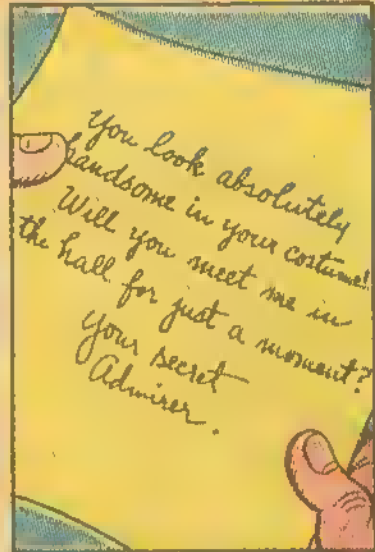 You look absolutely
handsome in your costume!
Will you meet me in
the hall for just a moment?
Your secret
Admirer.